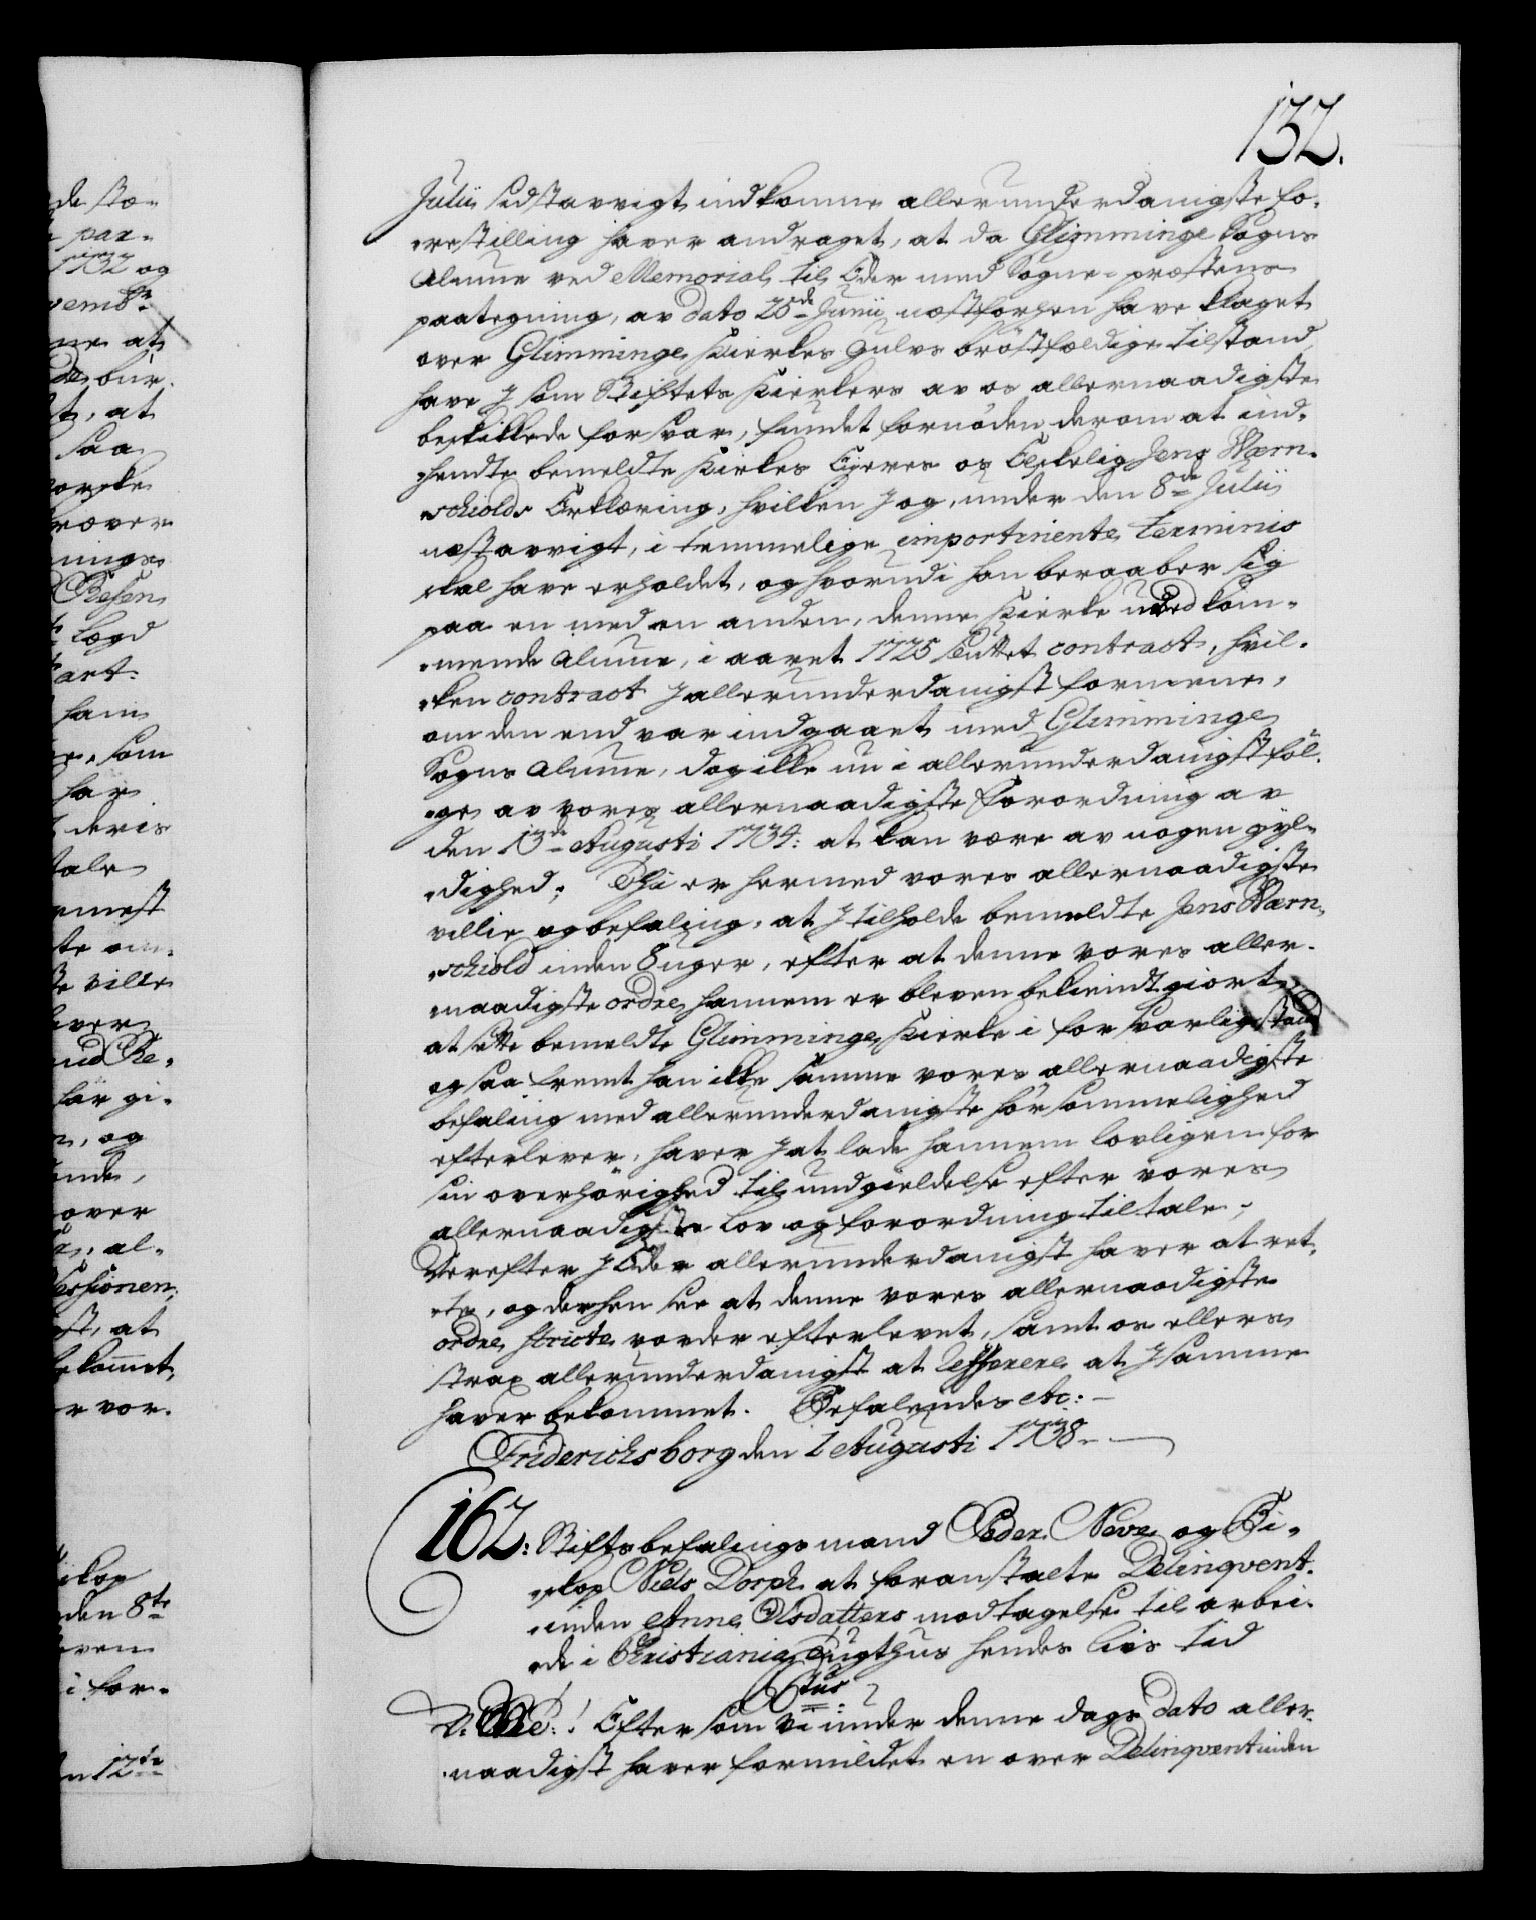 132.
Julii sidstavvigt indkomne allerunderdanigste fo-
restilling haver andraget, at da Glimminge Sogns
Almue ved Memorial til Eder med Sogne-præstens
paategning, av dato 25de Junii næstforhen have klaget
over Glimminge Kierkes Gulvs bröstfældige tilstand,
have I som Stiftets Kierkers av os allernaadigste
beskikkede forsvar, fundet fornöden derom at ind-
hendte bemeldte Kirkes Ejeres os Elskelig Jens Værn-
schiolds Erklæring, hvilken I og, under den 8de Julii
næstavvigt, i temmelige impertinente terminis
skal have erholdet, og hvorudi han beraaber sig
paa en med en anden, denne Kierke uvedkom-
mende Almue, i aaret 1725 sluttet contract, hvil-
ken contract I allerunderdanigst formene,
om den end var indgaaet med Glimminge
Sogns Almue, dog ikke nu i allerunderdanigst föl-
ge av vores allernaadigste Forordning av
den 13de Augusti 1734: at kan være av nogen gyl-
dighed; Thi er hermed vores allernaadigste
villie og befaling, at I tilholde bemeldte Jens Værn-
schiold inden 8 uger, efter at denne vores aller-
naadigste ordre hannem er bleven bekiendtgiort,
at sette bemeldte Glimminge Kierke i forsvarlig stand
og saafremt han ikke samme vores allernaadigste
befaling med allerunderdanigste hörsommelighed
efterlever, haver I at lade hannem lovligen for
sin overhörighed til undgieldelse efter vores
allernaadigste Lov og forordning tiltale;
Derefter I Eder allerunderdanigst haver at ret-
te, og derhen see at denne vores allernaadigste
ordre stricte vorder efterlevet, samt os ellers
strax allerunderdanigst at referere at I samme
haver bekommet. Befalendes etc:
Friderichsborg den 1 Augusti 1738
162: Stiftsbefalingsmand Peder Neve og Bi-
skop Niels Dorph at foranstalte Delinqvent-
inden Anne Olsdatters modtagelse til arbei-
de i Christiania Tugthus hendes livs tid
Eftersom vi under denne dags dato aller-
naadigst haver formildet en over Delinqventinden